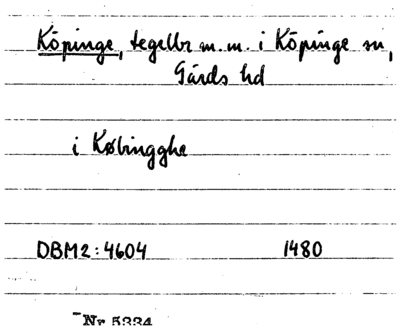 Köpinge, tegelbr m.m. i Köpinge sn,
Gärds hd
i Købingghe
DBM2:4604 1480
Nr 5334